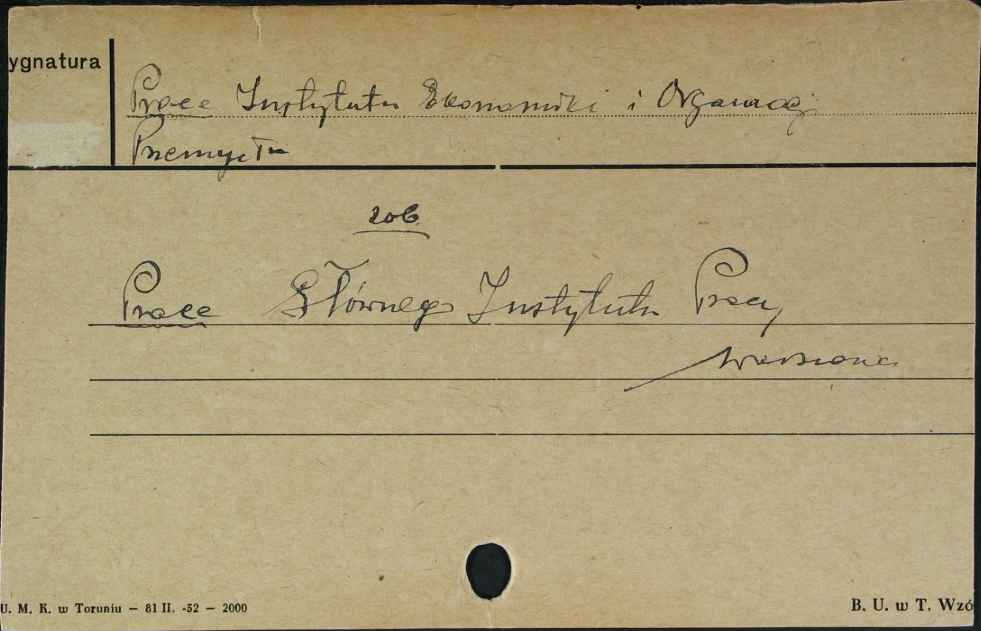 ygnatura
Prace Instytutu Ekonomiki i Organizacji
Przemysłu
zob.
Prace Głównego Instytutu Pracy
Warszawa
U. M. K. w Toruniu — 81 II. -52 — 2000
B. U. w T. Wzó